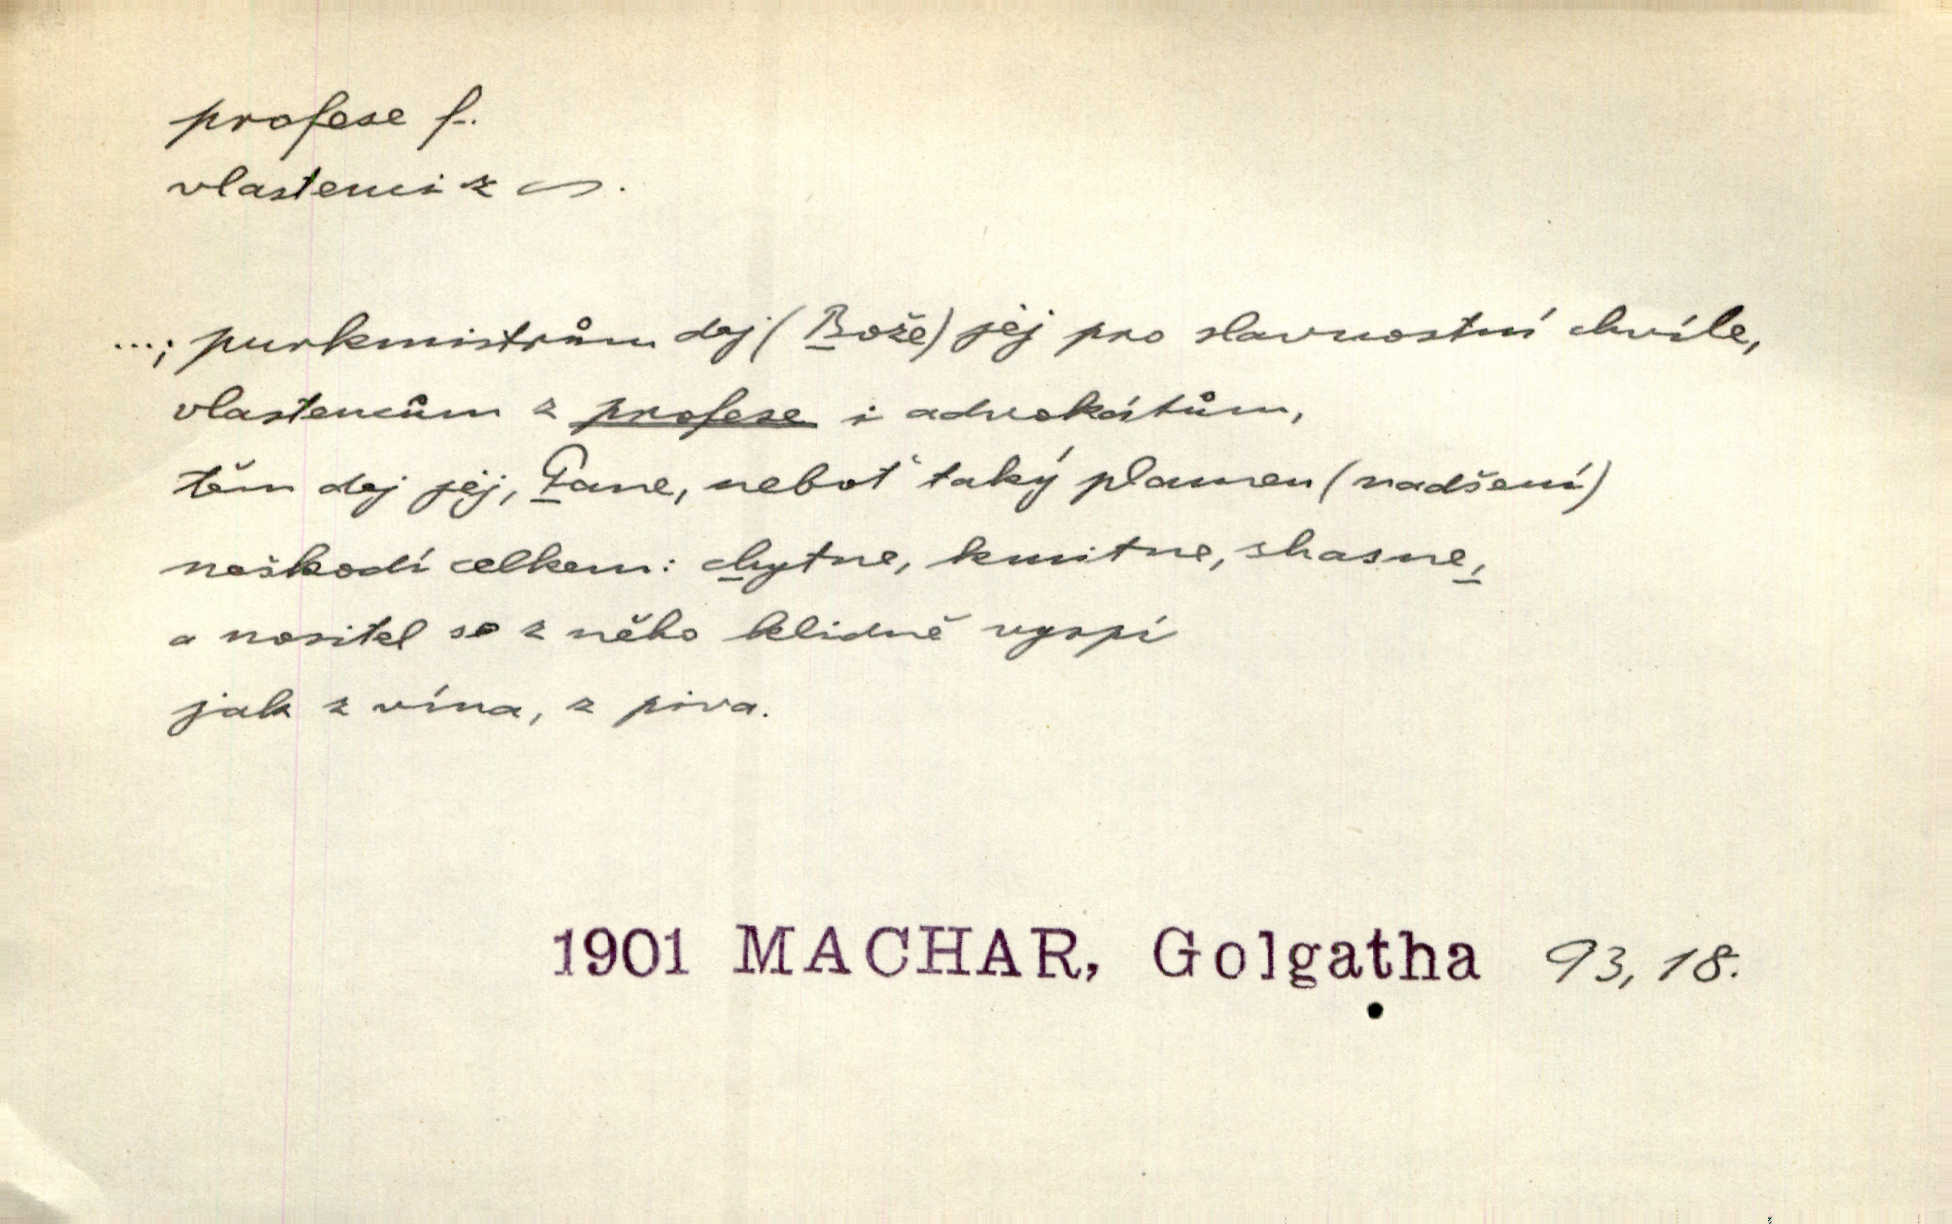 profese f.
vlastenci z ~.
...; purkmistrům dej (Bože) jej pro slavnostní chvíle,
vlastencům z profese i advokátům,
těm dej jej, Pane, neboť taký plamen (nadšení)
neškodí celkem: chytne, kmitne, shasne,
a nositel se z něho klidně vyspí
jak z vína, z piva.
1901 MACHAR, Golgatha 93, 18.